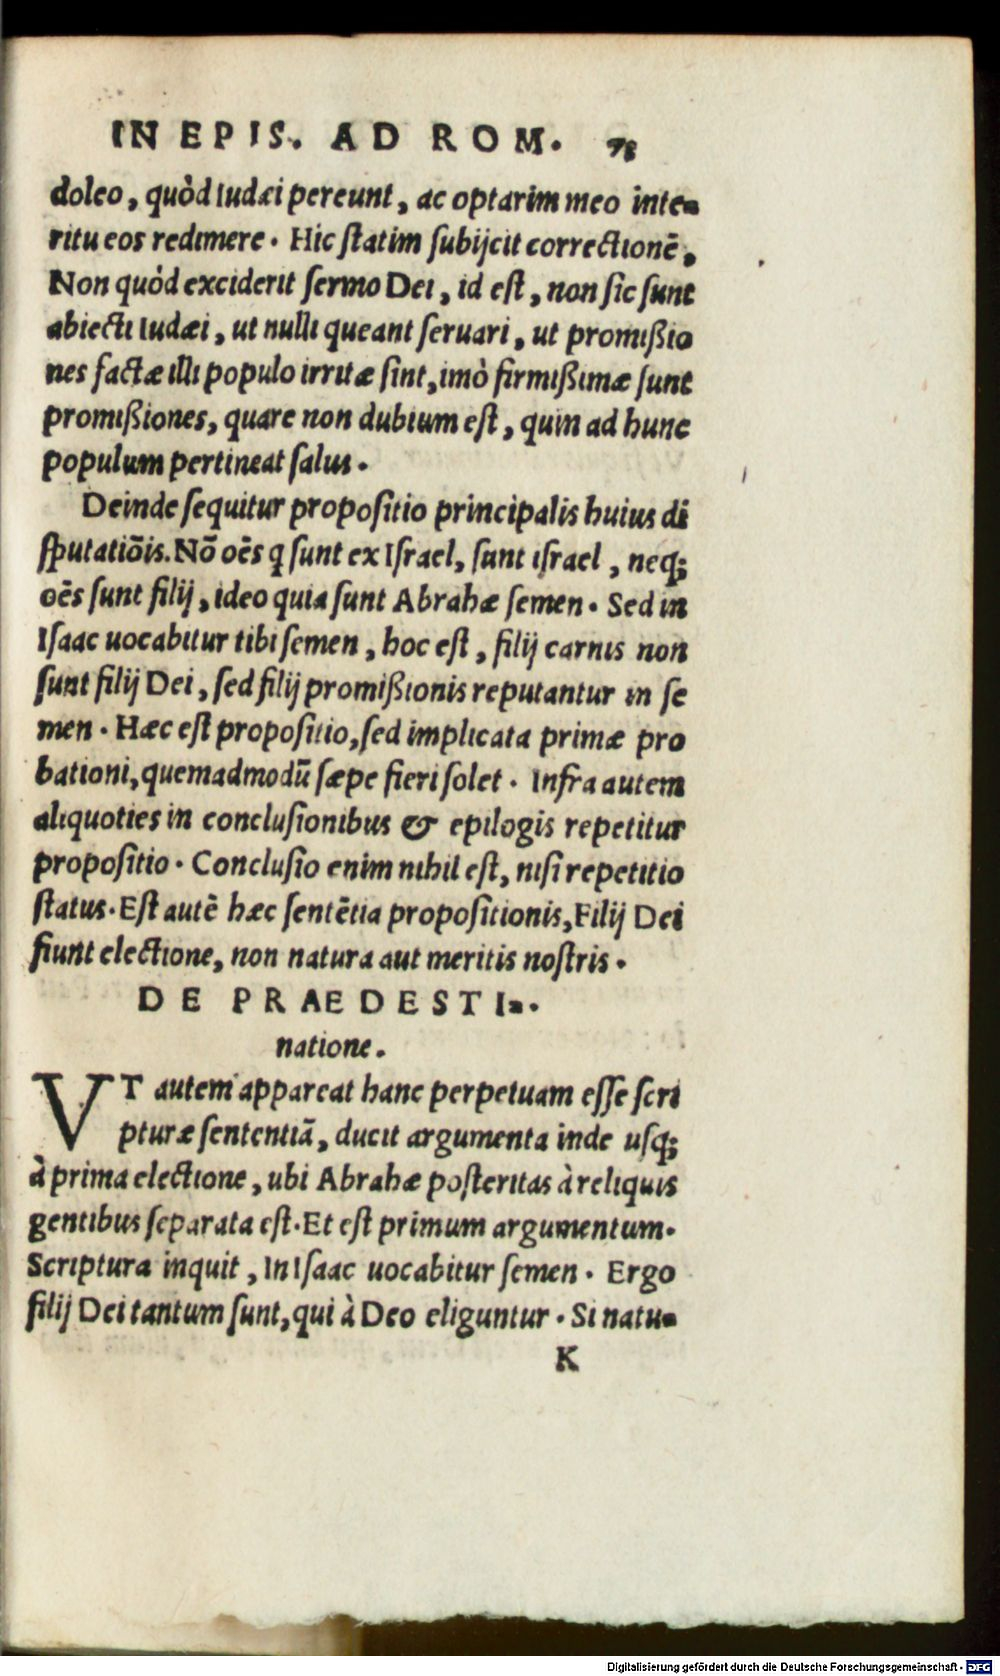 IN EPIS. AD ROM. 73
doleo, quòd Iudæi pereunt, ac optarim meo inte-
ritu eos redimere. Hic ſtatim ſubijcit correctionē,
Non quòd exciderit ſermo Dei, id eſt, non ſic ſunt
abiecti Iudæi, ut nulli queant ſeruari, ut promißio
nes factæ illi populo irritæ ſint, imò firmißimæ ſunt
promißiones, quare non dubium eſt, quin ad hunc
populum pertineat ſalus.
Deinde ſequitur propoſitio principalis huius di
ſputatiōis. Nō oēs q ſunt ex Iſrael, ſunt iſrael, neq;
oēs ſunt filij, ideo quia ſunt Abrahæ ſemen. Sed in
Iſaac uocabitur tibi ſemen, hoc eſt, filij carnis non
ſunt filij Dei, ſed filij promißionis reputantur in ſe
men. Hæc eſt propoſitio, ſed implicata primæ pro
bationi, quemadmodū ſæpe fieri ſolet. Infra autem
aliquoties in concluſionibus & epilogis repetitur
propoſitio. Concluſio enim nihil eſt, niſi repetitio
ſtatus. Eſt autē hæc ſentētia propoſitionis, Filij Dei
fiunt electione, non natura aut meritis noſtris.
DE PRAEDESTI-.
natione.
VT autem appareat hanc perpetuam eſſe ſcri
pturæ ſententiā, ducit argumenta inde uſq;
à prima electione, ubi Abrahæ poſteritas à reliquis
gentibus ſeparata eſt. Et eſt primum argumentum.
Scriptura inquit, In Iſaac uocabitur ſemen. Ergo
filij Dei tantum ſunt, qui à Deo eliguntur. Si natu-
K
Digitalisierung gefördert durch die Deutsche Forschungsgemeinschaft - DFG